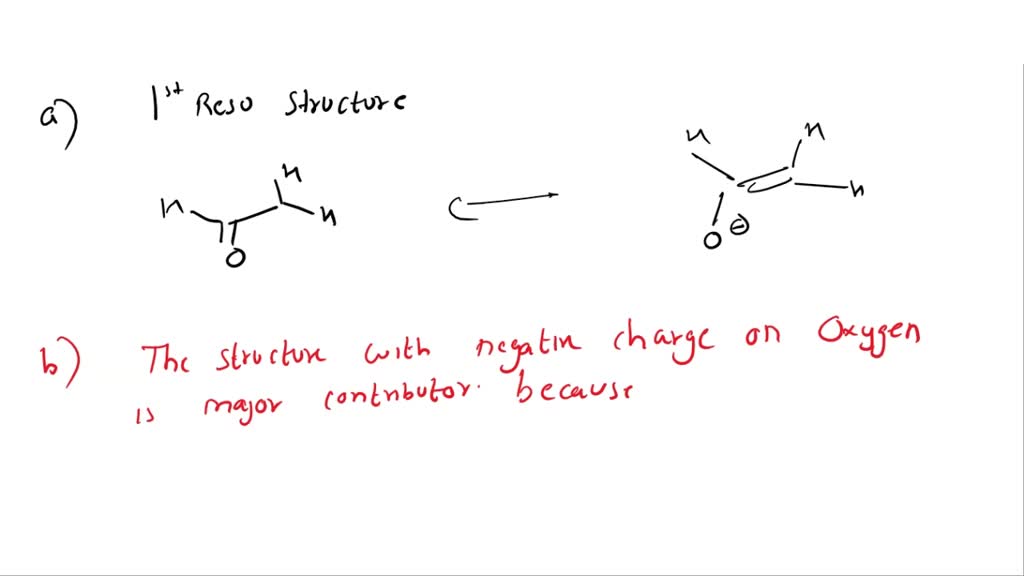 a) 1st Reso structure
H H
H H
H H
O
O ⊖
b) The structure with negative charge on Oxygen
is major contributor. because